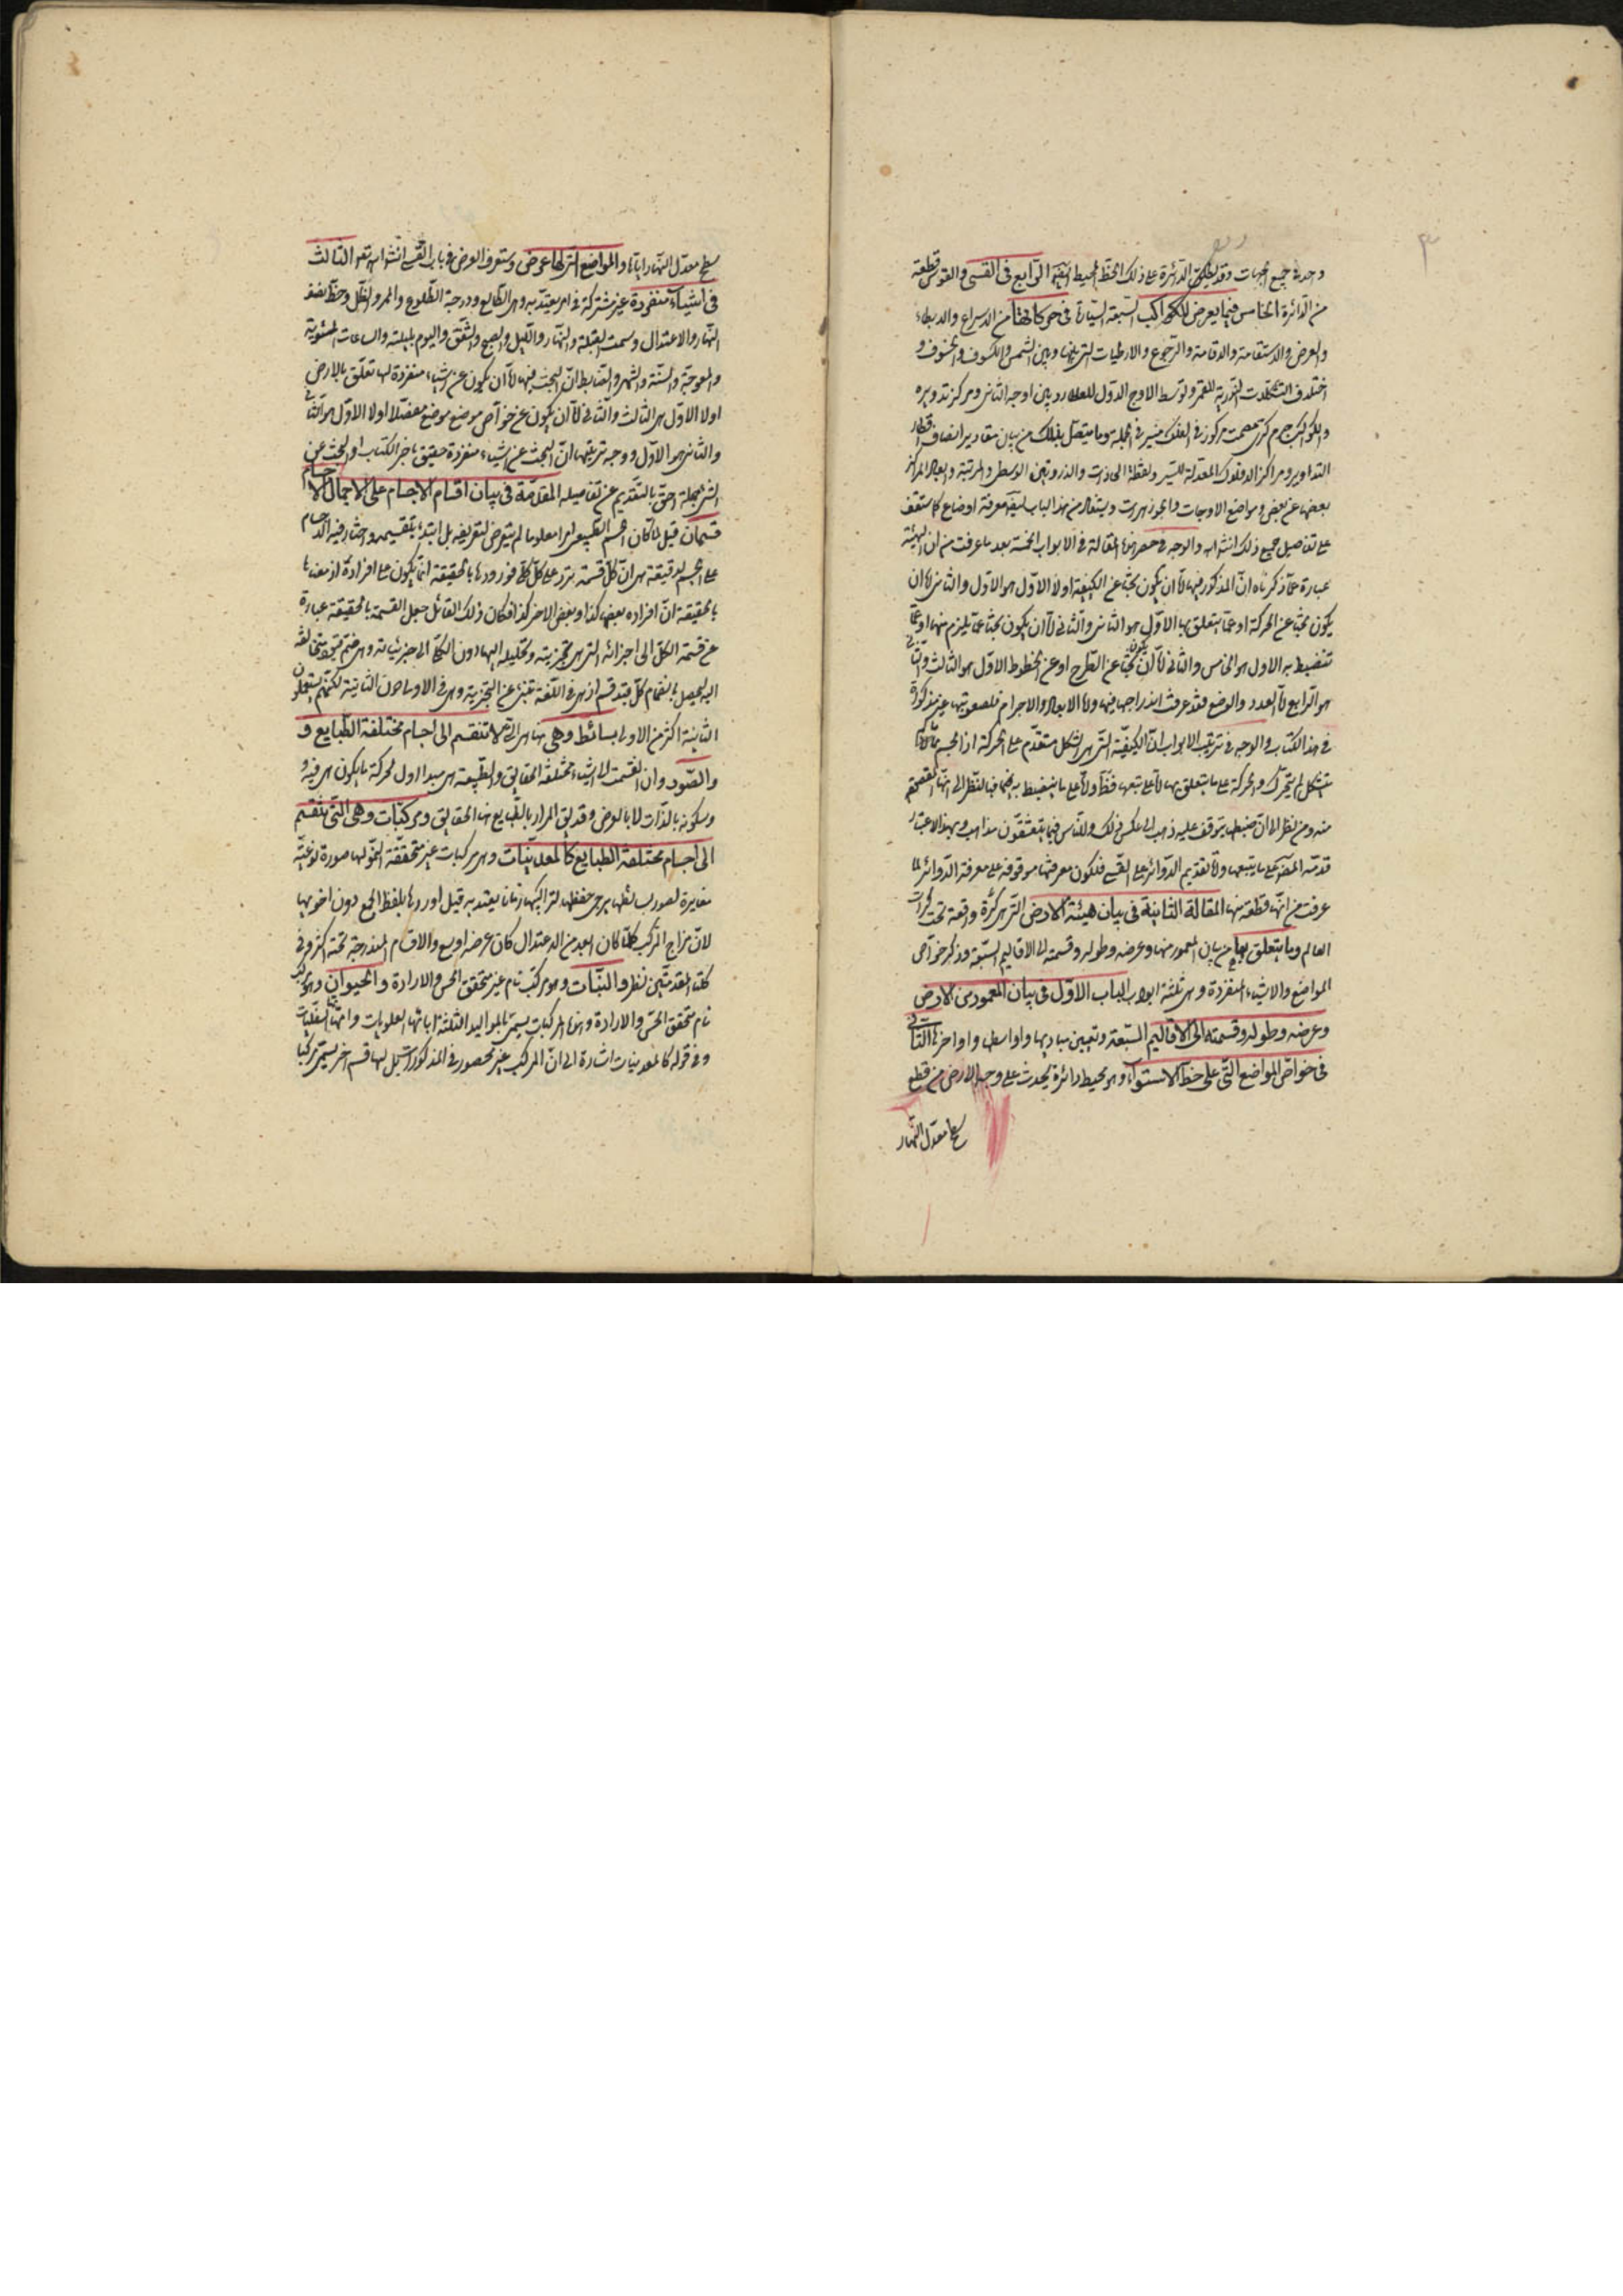 وحدة جميع الجهات وقد يطلق الدائرة على ذلك الخط المحيط ايضا الرابع في القسى والقوس قطعة
من الدائرة الخامس فيما يعرض للكواكب السبعة السيارة في حركاتها من الاسراع والابطاء
والعرض والاستقامة والاقامة والرجوع والارتباطات التي بينها وبين الشمس والكسوف والخسوف و
اختلاف التشكلات النورية للقمر وتوسط الاوج الاول للعطارد بين اوجه الثاني ومركز تدويره
والكواكب جرم كرى مصمت مركوز في الفلك منير في الجملة وما يتصل بذلك من بيان مقادير انصاف اقطار
التداوير ومراكز الافلاك المعدلة للسير ونقطة المحاذات والذروتين الوسطى والمرئية وابعاد المراكز
بعضها عن بعض ومواضع الاوجات والجوزهرات ويستفاد من هذا الباب كيفية معرفة اوضاعها كما ستقف
على تفاصيل جميع ذلك انشاء الله والوجه في حصر هذه المقالة في الابواب الخمسة بعد ما عرفت من ان الهيئة
عبارة عما ذكرناه ان المذكور فيها اما ان يكون بحثا عن الكيفية اولا الاول هو الاول والثاني اما ان
يكون بحثا عن الحركة او عما يتعلق بها الاول هو الثاني والثاني اما ان يكون بحثا عما يلزم منها او عما
تنضبط به الاول هو الخامس والثاني اما ان يكون بحثا عن السطوح او عن الخطوط الاول هو الثالث والثاني
هو الرابع اما العدد والوضع فقد عرفت اندراجهما فيها واما الابعاد والاجرام فلصعوبتها غير مذكورة
في هذا الكتاب والوجه في ترتيب الابواب ان الكيفية التي هي الشكل متقدم على الحركة اذ الجسم ما لم
يتشكل لم يتحرك والحركة على ما يتعلق بها اما على تبعها فظ واما على ما ينضبط به ايضا فبالنظر الى انها المقصود
منه ومن نظر الى ان ضبطها يتوقف عليه ذهب الى عكس ذلك وللناس فيما يعشقون مذاهب وبهذا الاعتبار
قدمه المصنف على ما يتبعها واما تقديم الدوائر على القسى فلكون معرفتها موقوفة على معرفة الدوائر لما
عرفت من انها قطعة منها المقالة الثانية في بيان هيئة الارض التي هي كرة واقعة تحت كرات
العالم وما يتعلق بها من بيان المعمور منها وعرضه وطوله وقسمته الى الاقاليم السبعة وذكر خواص
المواضع والاشياء المنفردة وهي ثلثة ابواب الباب الاول في بيان المعمور من الارض
وعرضه وطوله وقسمته الى الاقاليم السبعة وتعيين مباديها واواسطها واواخرها الثاني
في خواص المواضع التي على خط الاستواء وهو محيط دائرة يحدث على وجه الارض من قطع
سطح معدل النهار
سطح معدل النهار اياها والمواضع التي لها عرض وستعرف العرض في باب القسى انشاء الله تعالى الثالث
في اشياء منفردة غير مشتركة في امر يعتد به وهي الطالع ودرجة الطلوع والممر والظل وخط نصف
النهار والاعتدال وسمت القبلة والنهار والليل والصبح والشفق واليوم بليلته والساعات المستوية
والمعوجة والسنة والشهر والضابط ان البحث فيها اما ان يكون عن اشياء منفردة لها تعلق بالارض
اولا الاول هو الثالث والثاني اما ان يكون عن خواص موضع موضع مفصلا اولا الاول هو الثاني
والثاني هو الاول ووجه ترتيبها ان البحث عن اشياء منفردة حقيق باخر الكتاب والبحث عن
الشئ جملة احق بالتقديم عن تفاصيله المقدمة في بيان اقسام الاجسام على الاجمال الاجسام
قسمان قيل لما كان الجسم الطبيعى امرا معلوما لم يتعرض لتعريفه بل ابتدء بتقسيمه واختار فيه الاجسام
على الجسم لدقيقة هي ان كل قسمة ترد على كلى فورودها بالحقيقة انما يكون على افراده اذ معناها
بالحقيقة ان افراده بعضها كذا وبعض الاخر كذا فكان ذلك القائل جعل القسمة بالحقيقة عبارة
عن قسمة الكل الى اجزائه التي هي تجزيته وتحليله اليها دون الكلى الى جزئياته وهي ضم قيود متخالفة
اليه ليحصل بانضمام كل قيد قسم اذ هي في اللغة تنبئ عن التجزية وهي في الاولى دون الثانية لكنهم يستعملون
الثانية اكثر من الاولى بسائط وهي هنا هي التي لا تنقسم الى اجسام مختلفة الطبايع و
والصور وان انقسمت الى اشياء مختلفة الحقايق والطبيعة هي مبدا اول لحركة ما يكون هي فيه و
وسكونه بالذات لا بالعرض وقد يق المراد بالطبايع هنا الحقايق ومركبات وهي التي تنقسم
الى اجسام مختلفة الطبايع كالمعدنيات وهي مركبات غير متحققة النمو لها صورة نوعية
مغايرة لصور بسائطها يرجى حفظها لتراكيبها زمانا يعتد به قيل اوردها بلفظ الجمع دون اخويها
لان مزاج المركب كلما كان ابعد من الاعتدال كان عرضه اوسع والاقسام المندرجة تحته اكثر وفي
كلتا المقدمتين نظر والنبات وهو مركب تام غير متحقق الحس والارادة والحيوان وهو مركب
تام متحقق الحس والارادة وهذه المركبات يسمى بالمواليد الثلثة ابائها العلويات وامهاتها السفليات
وفي قوله كالمعدنيات اشارة الى ان المركب غير محصور في المذكورات بل لها قسم اخر يسمى مركبا